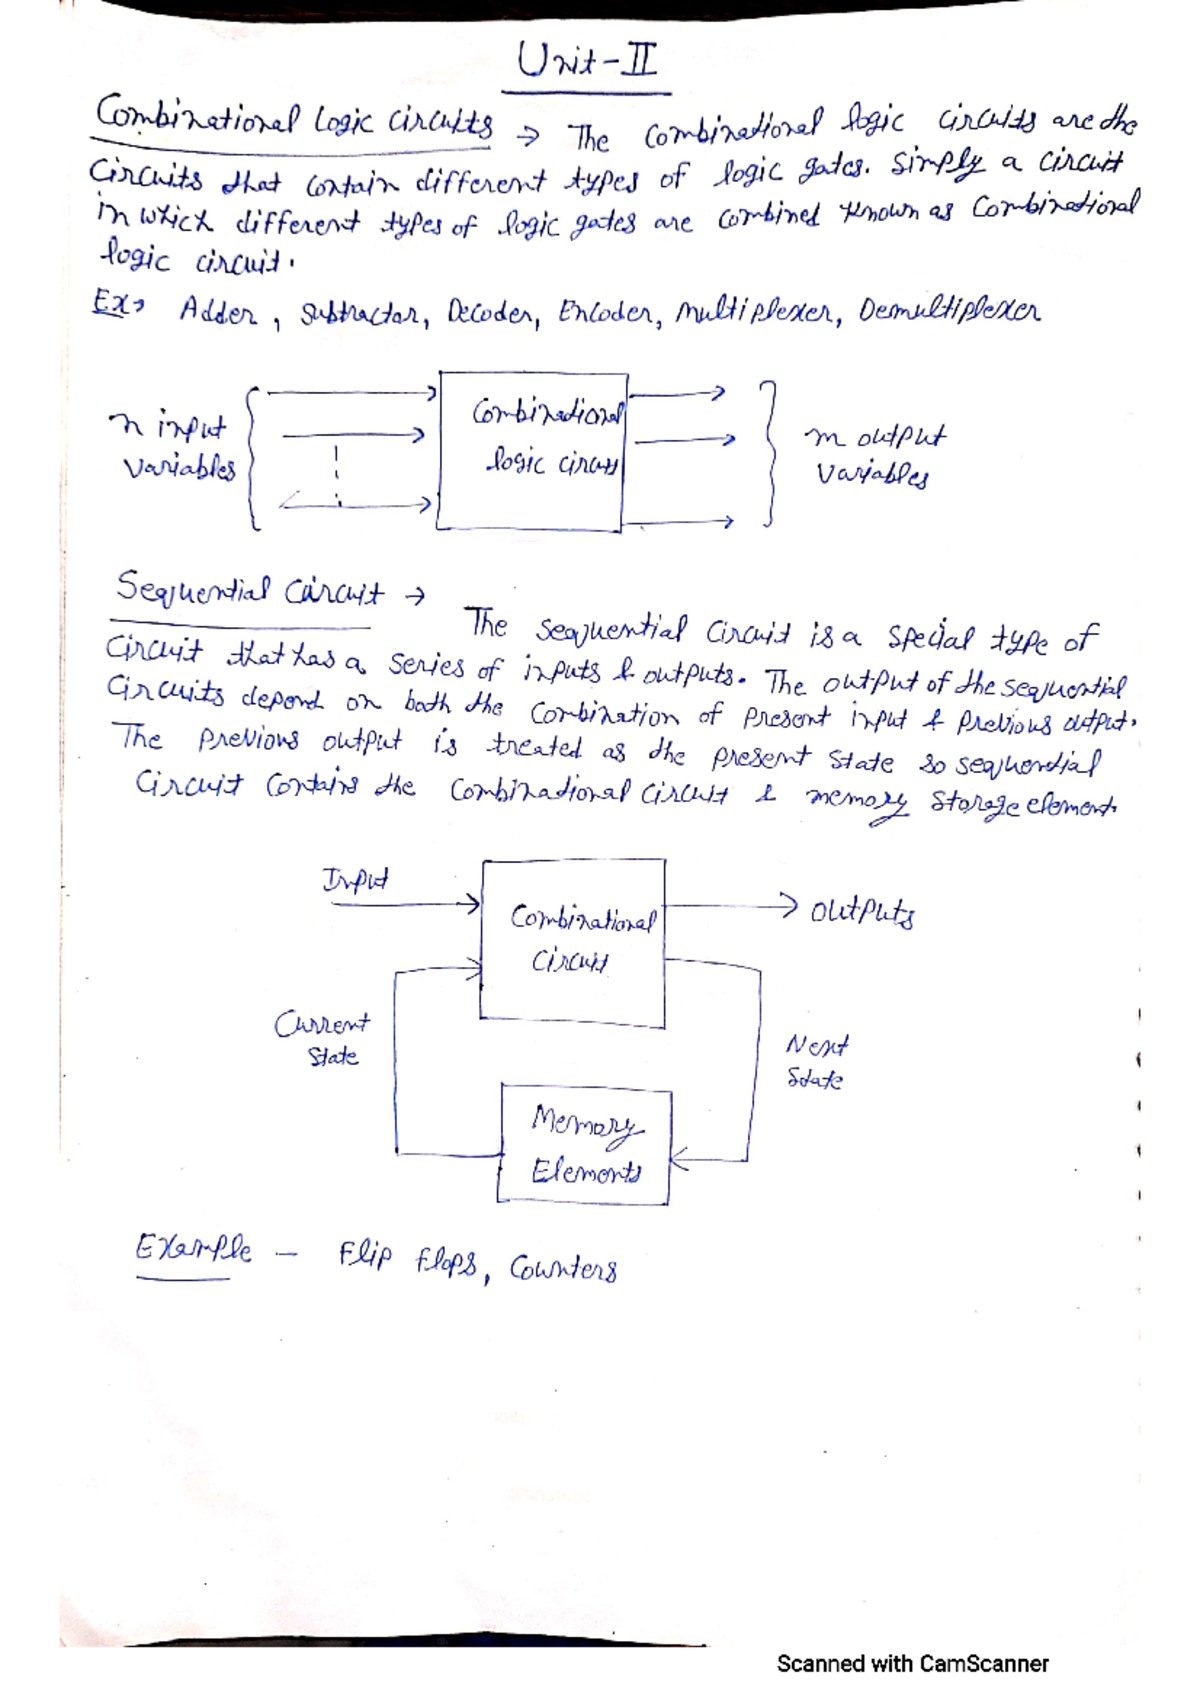 Unit-II
Combinational Logic Circuits → The Combinational logic circuits are the
Circuits that contain different types of logic gates. Simply a circuit
in which different types of logic gates are combined known as Combinational
logic circuit.
Ex→ Adder, Subtractor, Decoder, Encoder, Multiplexer, Demultiplexer
n input
variables
Combinational
logic circuit
m output
variables
Sequential Circuit →
The sequential circuit is a special type of
Circuit that has a series of inputs & outputs. The output of the sequential
Circuits depend on both the combination of present input & previous output.
The previous output is treated as the present state so sequential
Circuit contains the combinational circuit & memory storage element.
Input
Combinational
Circuit
outputs
Current
State
Next
State
Memory
Elements
Example - Flip flops, Counters
Scanned with CamScanner